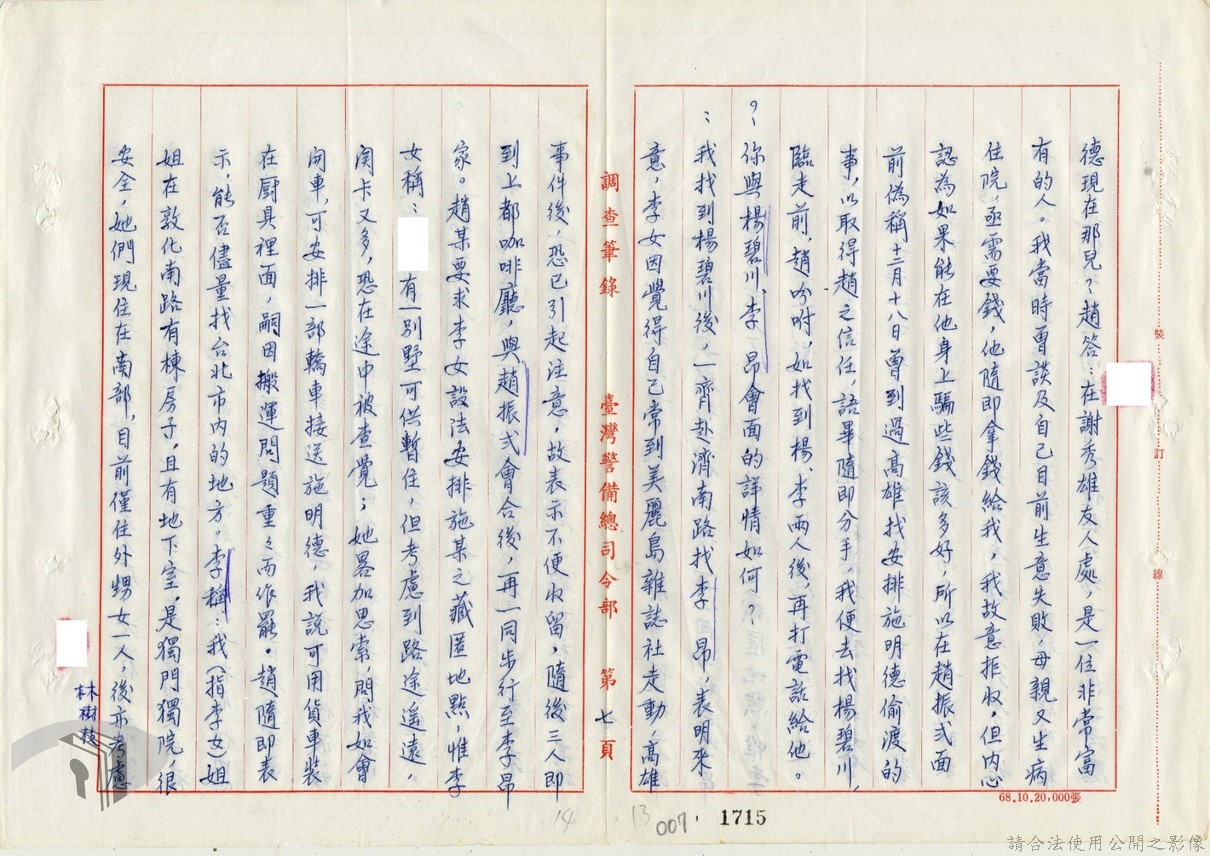 德現在那兒？趙答：在謝秀雄友人處，是一位非常富
有的人。我當時曾談及自己目前生意失敗，母親又生病
住院，亟需要錢，他隨即拿錢給我，我故意拒收，但內心
認為如果能在他身上騙些錢該多好，所以在趙振弍面
前偽稱十二月十八日曾到過高雄找安排施明德偷渡的
事，以取得趙之信任，語畢隨即分手，我便去找楊碧川，
臨走前，趙吩咐，如找到楊、李兩人後，再打電話給他。
？你與楊碧川、李 昂會面的詳情如何？
：我找到楊碧川後，一齊赴濟南路找李 昂，表明來
意，李女因覺得自己常到美麗島雜誌社走動，高雄
調查筆錄 臺灣警備總司令部 第七頁
事件後，恐已引起注意，故表示不便收留，隨後三人即
到上都咖啡廳，與趙振弍會合後，再一同步行至李昂
家。趙某要求李女設法安排施某之藏匿地點，惟李
女稱： 有一別墅可供暫住，但考慮到路途遙遠，
関卡又多，恐在途中被查覺，她畧加思索，問我如會
開車，可安排一部轎車接送施明德，我說可用貨車裝
在厨具裡面，嗣因搬運問題重々而作罷。趙隨即表
示，能否儘量找台北市內的地方。李稱：我（指李女）姐
姐在敦化南路有棟房子，且有地下室，是獨門獨院，很
安全，她們現住在南部，目前僅住外甥女一人，後亦考慮
林樹枝
裝訂線
68.10.20,000張
14
13
007
1715
請合法使用公開之影像